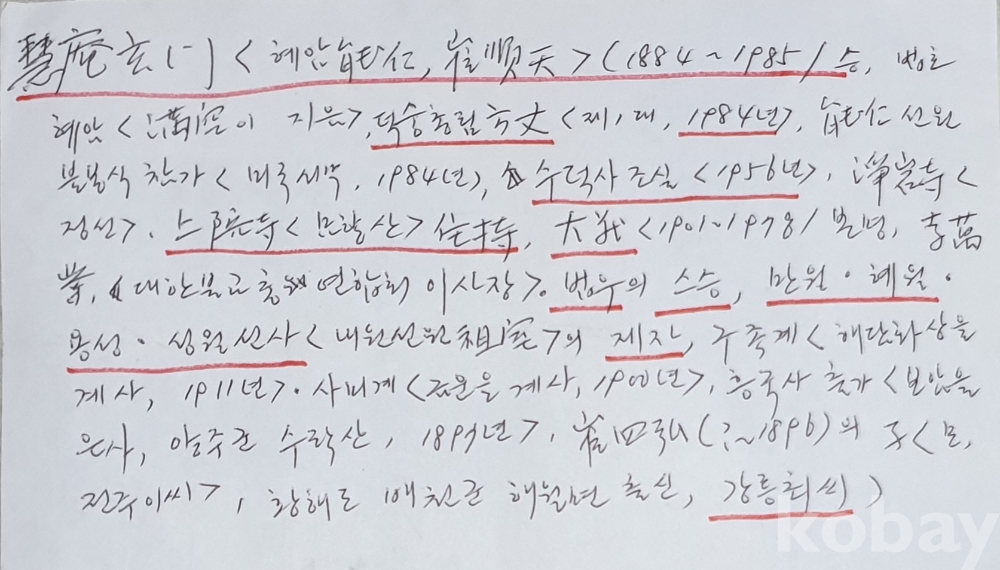 慧庵玄(一) < 혜암能仁, 崔順天 > (1884~1985/승, 법호
혜암 <滿空이 지음>, 덕숭총림方丈 <제1대, 1984년>, 能仁선원
봉불식 참가 < 미국서부, 1984년>, 수덕사 조실 <1956년>, 淨岩寺 <
정선>. 上院寺 <묘향산> 住持, 大義 <1901~1978/ 본명, 李萬
業, 대한불교총연합회 이사장>. 범우의 스승, 만원·혜원·
용성·성월선사 <내원선원祖室>의 제자, 구족계 <해담화상을
계사, 1911년>. 사미계 <경운을 계사, 1900년>, 흥국사 출가 <보암을
은사, 양주군 수락산, 1897년>, 崔四弘(?~1896)의 子 <모,
전주이씨>, 황해도 배천군 해월면 출신, 강릉최씨)
kobay